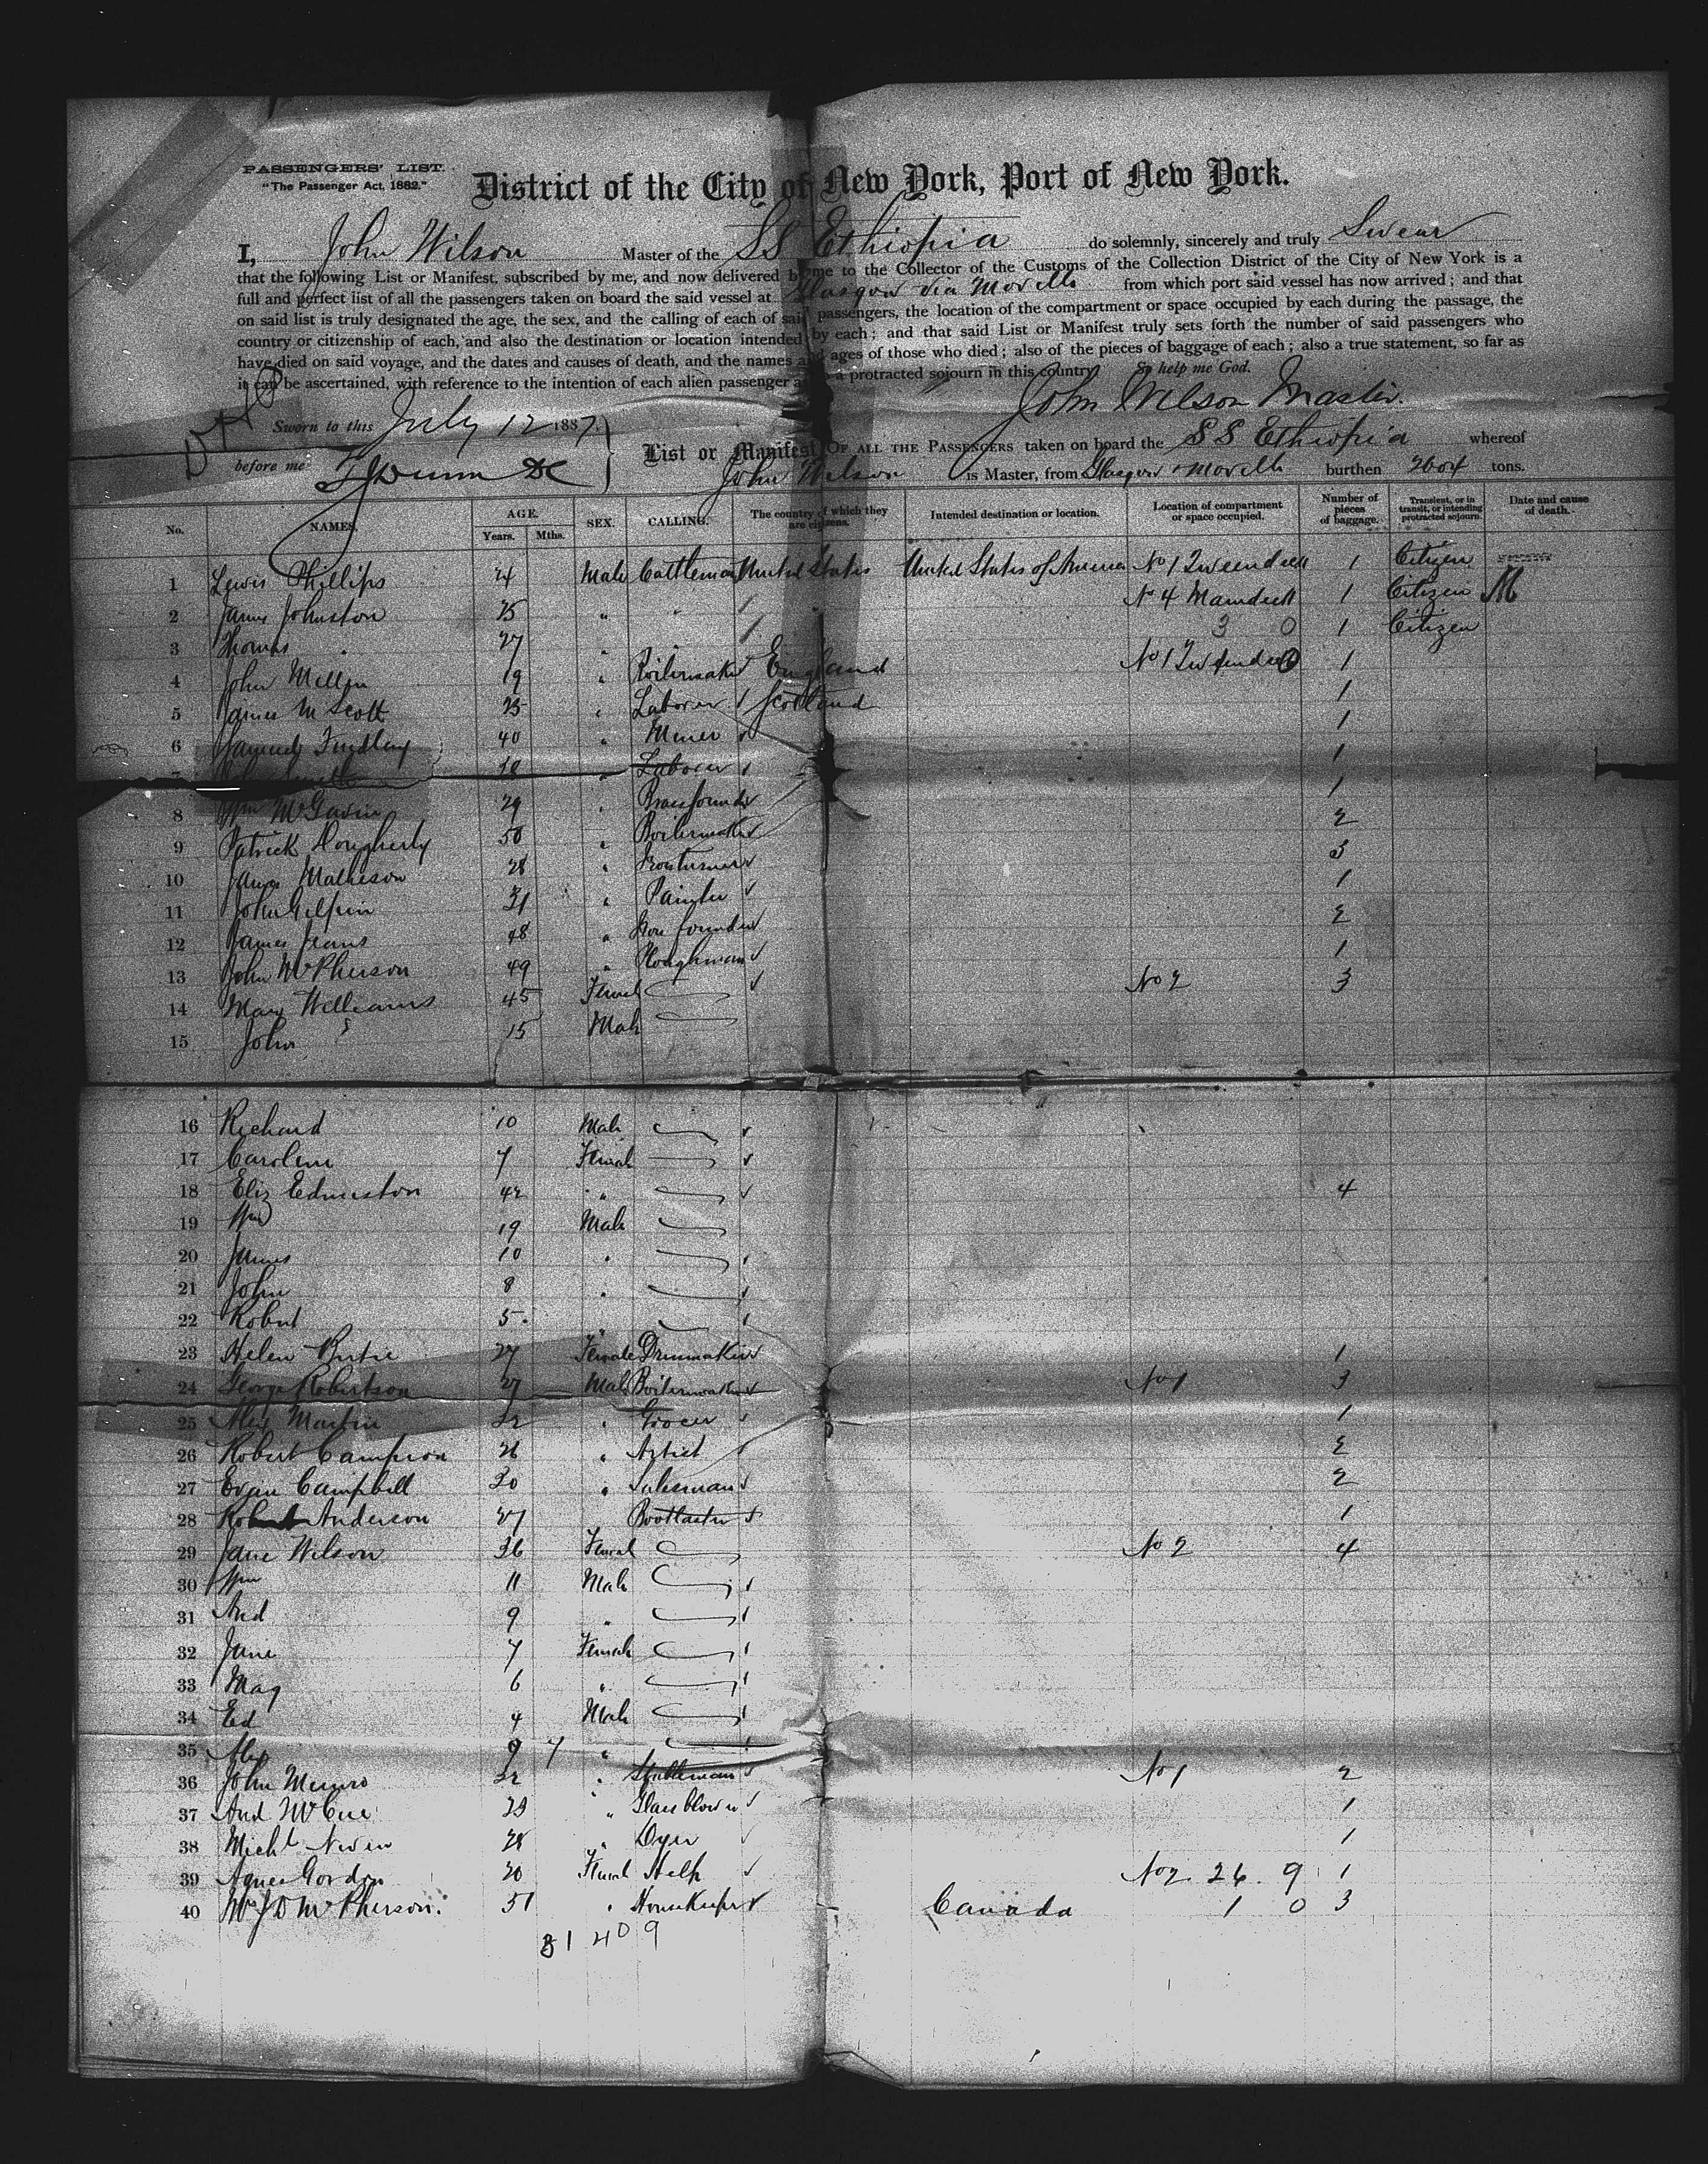 PASSENGERS' LIST.
"The Passenger Act, 1882."
District of the City of New York, Port of New York.
I, John Wilson Master of the SS Ethiopia do solemnly, sincerely and truly Swear
that the following List or Manifest, subscribed by me, and now delivered by me to the Collector of the Customs of the Collection District of the City of New York is a
full and perfect list of all the passengers taken on board the said vessel at Glasgow via Moville from which port said vessel has now arrived; and that
on said list is truly designated the age, the sex, and the calling of each of said passengers, the location of the compartment or space occupied by each during the passage, the
country or citizenship of each, and also the destination or location intended by each; and that said List or Manifest truly sets forth the number of said passengers who
have died on said voyage, and the dates and causes of death, and the names and ages of those who died; also of the pieces of baggage of each; also a true statement, so far as
it can be ascertained, with reference to the intention of each alien passenger as to a protracted sojourn in this country. So help me God.
John Wilson Master.
Sworn to this July 12 1887
before me
List or Manifest OF ALL THE PASSENGERS taken on board the SS Ethiopia whereof
John Wilson is Master, from Glasgow & Moville burthen 2604 tons.
No. NAMES. AGE. Years. Mths. SEX. CALLING. The country of which they are citizens. Intended destination or location. Location of compartment or space occupied. Number of pieces of baggage. Transient, or in transit, or intending protracted sojourn. Date and cause of death.
1 Lewis Phillips 24 Male Cattleman United States United States of America No 1 Tweendeck 1 Citizen
2 James Johnston 25 " " No 4 Maindeck 1 Citizen
3 Thomas " 27 " " 3 0 1 Citizen
4 John Mellon 19 " Boilermaker England No 1 Tweendeck 1
5 James M Scott 25 " Laborer Scotland 1
6 Samuel Findlay 40 " Miner 1
7 18 " Laborer 1
8 Wm McGavin 29 " Brassfounder 1
9 Patrick Dougherty 50 " Boilermaker 2
10 James Matheson 28 " Ironturner 3
11 John Gilpin 31 " Painter 1
12 James Jeans 48 " Iron founder 2
13 John McPherson 49 " Ploughman 1
14 Mary Williams 45 Female No 2 3
15 John 15 Male
16 Richard 10 Male
17 Caroline 7 Female
18 Eliz Edmiston 42 " 4
19 Wm 19 Male
20 James 10 "
21 John 8 "
22 Robert 5 "
23 Helen 27 Female Dressmaker 1
24 George Robertson 27 Male Boilermaker No 1 3
25 Alex Martin 32 " Grocer 1
26 Robert 26 " Artist 2
27 Evan Campbell 30 " Salesman 2
28 Robert Anderson 27 1
29 Jane Wilson 36 Female No 2 4
30 Wm 11 Male
31 And 9 "
32 Jane 7 Female
33 Mag 6 "
34 Ed 4 Male
35 Alex 7 "
36 John Munro 32 " No 1 2
37 And McCue 23 " Glassblower 1
38 Michl 28 " Dyer 1
39 Agnes Gordon 20 Female Help No 2 26. 9 1
40 Mrs J D McPherson. 51 " Housekeeper Canada 1 0 3
31 40 9